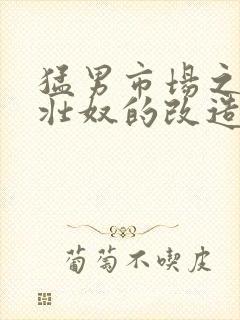 猛男市场之
壮奴的改造
葡萄不喫皮